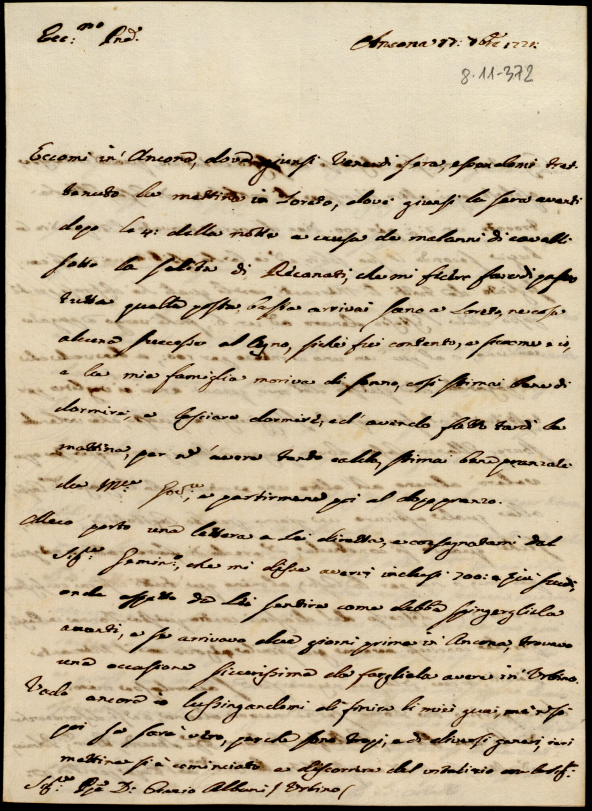 Ecc:mo Prd.
Ancona 17: 7bre 1721:
8-11-372
Eccomi in Ancona, dove giunsi Venerdì sera, essendomi trat-
tenuto la mattina in Loreto, dove giunsi la sera avanti
dopo le 4: della notte a causa de malanni di cavalli
sotto la salita di Recanati, che mi fecero
tutta quella posta basta arrivai sano a Loreto, ne cosa
alcuna successe al legno, sichè fui contento, e siccome e io,
e la mia famiglia moriva di sonno, così stimai bene di
dormire, e lasciare dormire, ed avendo fatto tardi la
mattina, per n' avere tanto caldo, stimai bene pranzare
da, e partirmene poi al doppo pranzo.
Meco porto una lettera a Lei diretta, e consegnatami dal
Sig:re, che mi disse averci inclusi 700: e più scudi,
onde aspetto da Lei sentire come debba spingergliela
avanti, e se arrivavo due giorni prima in Ancona, trovavo
una occasione sicurissima da fargliela avere in Urbino.
Vado ancora io lusingandomi di finire li miei guai, ma n' so
poi se sarà vero, perchè sono troppi, e di diversi generi, ieri
mattina si è cominciato a discorrere del vitalizio
Sig:re D: Orazio Albani / Urbino /